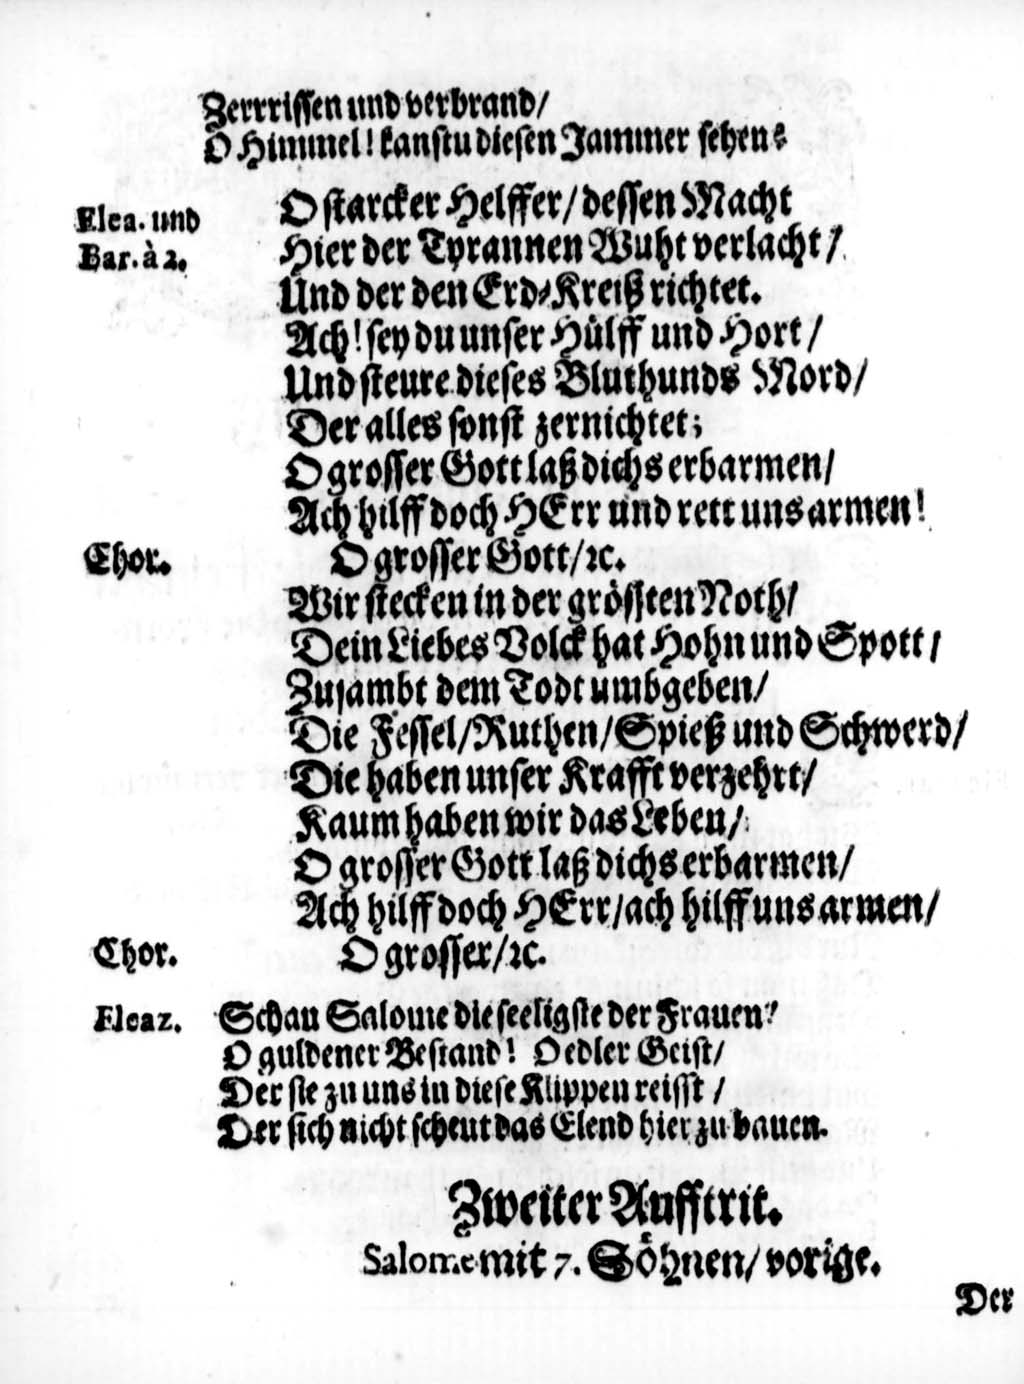 Zerrrissen und verbrand/
O Himmel! kanstu diesen Jammer sehen?
Elea. und O starcker Helffer/ dessen Macht
Bar. à 2. Hier der Tyrannen Wuht verlacht/
Und der den Erd-Kreiß richtet.
Ach! sey du unser Hülff und Hort/
Und steure dieses Bluthunds Mord/
Der alles sonst zernichtet;
O grosser Gott laß dichs erbarmen/
Ach hilff doch HErr und rett uns armen!
Chor. O grosser Gott/ ꝛc.
Wir stecken in der grössten Noth/
Dein Liebes Volck hat Hohn und Spott/
Zusambt dem Todt umbgeben/
Die Fessel/ Ruthen/ Spieß und Schwerd/
Die haben unser Krafft verzehrt/
Kaum haben wir das Leben/
O grosser Gott laß dichs erbarmen/
Ach hilff doch HErr/ ach hilff uns armen/
Chor. O grosser/ ꝛc.
Eleaz. Schau Salome die seeligste der Frauen?
O guldener Bestand! O edler Geist/
Der sie zu uns in diese Klippen reisst/
Der sich nicht scheut das Elend hier zu bauen.
Zweiter Aufftrit.
Salome mit 7. Söhnen/ vorige.
Der